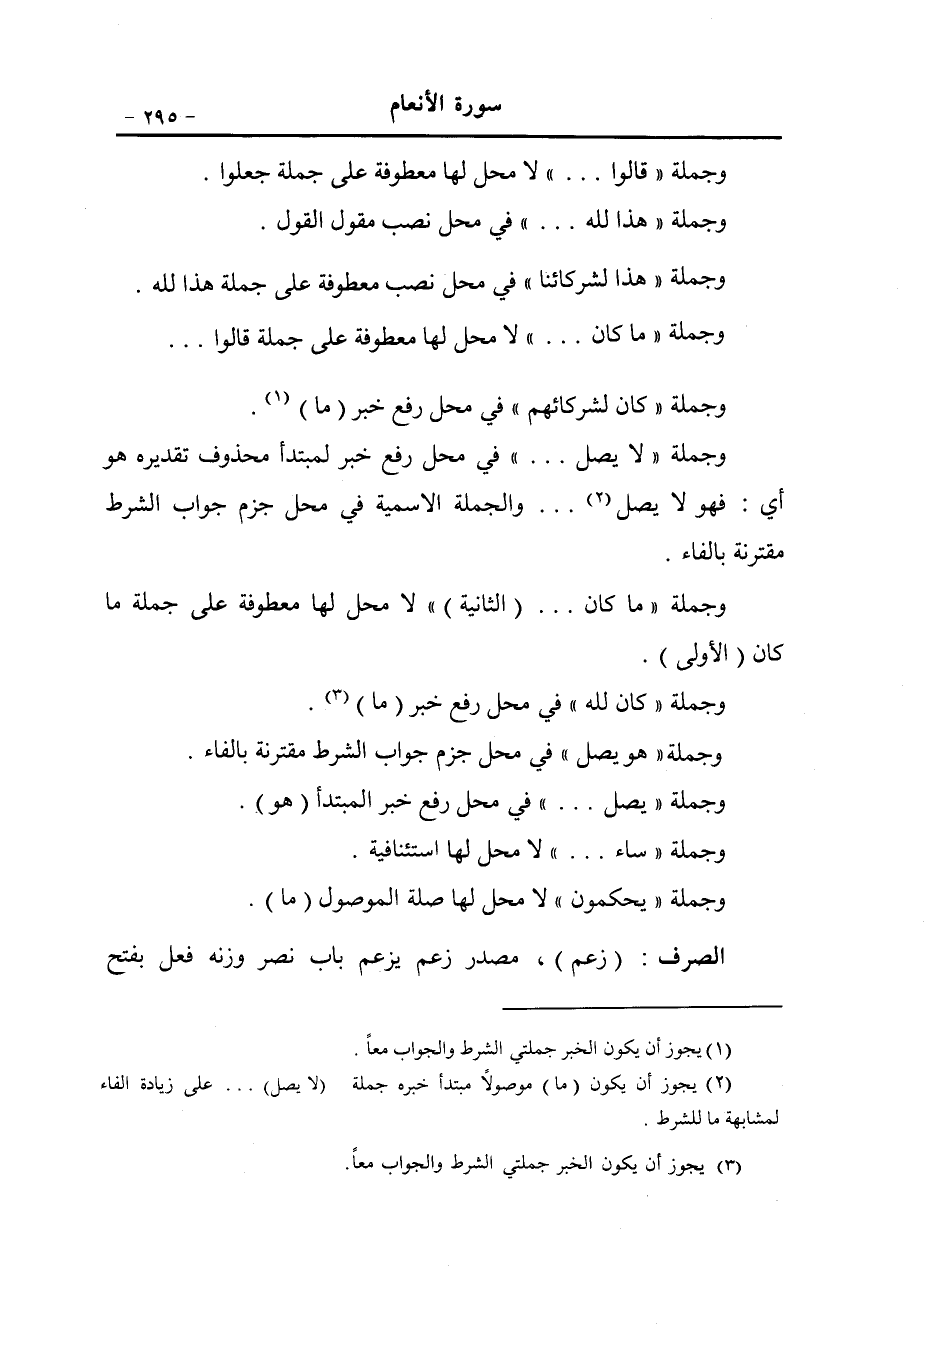 سورة الأنعام
- ٢٩٥ -
وجملة « قالوا ... » لا محل لها معطوفة على جملة جعلوا .
وجملة « هذا لله ... » في محل نصب مقول القول .
وجملة « هذا لشركائنا » في محل نصب معطوفة على جملة هذا لله .
وجملة « ما كان ... » لا محل لها معطوفة على جملة قالوا ...
وجملة « كان لشركائهم » في محل رفع خبر ( ما ) (١) .
وجملة « لا يصل ... » في محل رفع خبر لمبتدأ محذوف تقديره هو
أي : فهو لا يصل (٢) ... والجملة الاسمية في محل جزم جواب الشرط
مقترنة بالفاء .
وجملة « ما كان ... ( الثانية ) » لا محل لها معطوفة على جملة ما
كان ( الأولى ) .
وجملة « كان لله » في محل رفع خبر ( ما ) (٣) .
وجملة « هو يصل » في محل جزم جواب الشرط مقترنة بالفاء .
وجملة « يصل ... » في محل رفع خبر المبتدأ ( هو ) .
وجملة « ساء ... » لا محل لها استئنافية .
وجملة « يحكمون » لا محل لها صلة الموصول ( ما ) .
الصرف : ( زعم ) ، مصدر زعم يزعم باب نصر وزنه فعل بفتح
(١) يجوز أن يكون الخبر جملتي الشرط والجواب معاً .
(٢) يجوز أن يكون ( ما ) موصولًا مبتدأ خبره جملة (لا يصل) ... على زيادة الفاء
لمشابهة ما للشرط .
(٣) يجوز أن يكون الخبر جملتي الشرط والجواب معاً.